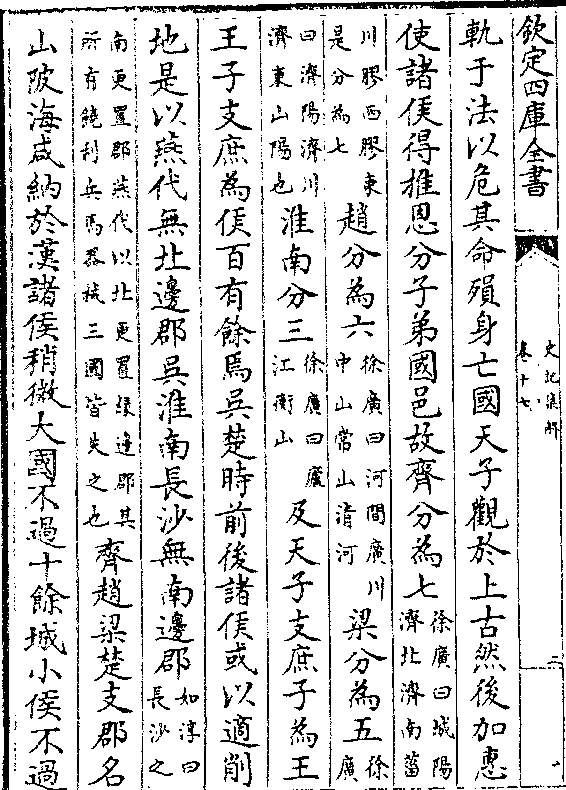 欽定四庫全書
史記集解
卷十七
二
軌于法以危其命殞身亡國天子觀於上古然後加惠
使諸侯得推恩分子弟國邑故齊分為七徐廣曰城陽濟北濟南菑
川膠西膠東是分為七趙分為六徐廣曰河間廣川中山常山清河梁分為五徐廣
曰濟陽濟川濟東山陽也淮南分三徐廣曰廬江衡山及天子支庶子為王
王子支庶為侯百有餘焉吳楚時前後諸侯或以適削
地是以燕代無北邊郡吳淮南長沙無南邊郡如淳曰長沙之
南更置郡燕代以北更置緣邊郡其所有饒利兵馬器械三國皆失之也齊趙梁楚支郡名
山陂海咸納於漢諸侯稍微大國不過十餘城小侯不過